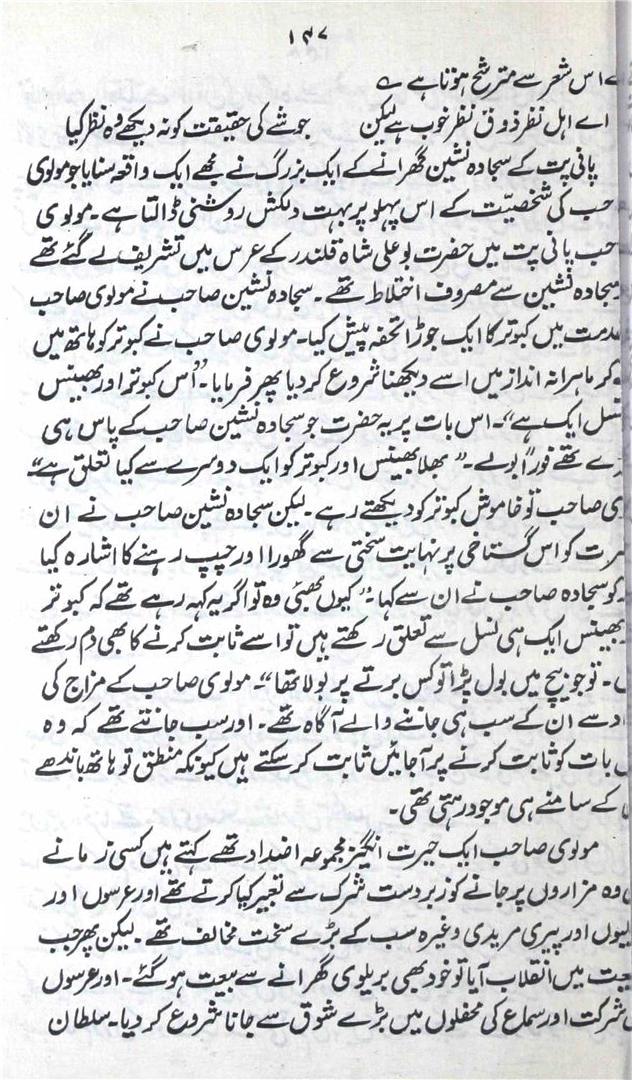 ۱۴۷
اس شعر سے مترشح ہوتا ہے ؎
اے اہل نظر ذوق نظر خوب ہے لیکن جو شے کی حقیقت کو نہ دیکھے وہ نظر کیا
پانی پت کے سجادہ نشین گھرانے کے ایک بزرگ نے مجھے ایک واقعہ سنایا جو مولوی
حب کی شخصیّت کے اس پہلو پر بہت دلکش روشنی ڈالتا ہے۔ مولوی
حب پانی پت میں حضرت بو علی شاہ قلندر کے عرس میں تشریف لے گئے تھے
سجادہ نشین سے مصروف اختلاط تھے۔ سجادہ نشین صاحب نے مولوی صاحب
دمت میں کبوتر کا ایک جوڑا تحفہ پیش کیا۔ مولوی صاحب نے کبوتر کو ہاتھ میں
کر ماہرانہ انداز میں اسے دیکھنا شروع کر دیا پھر فرمایا۔ "اُس کبوتر اور بھینس
نسل ایک ہے"۔ اس بات پر یہ حضرت جو سجادہ نشین صاحب کے پاس ہی
ے تھے فوراً بولے۔ "بھلا بھینس اور کبوتر کو ایک دوسرے سے کیا تعلق ہے"
ی صاحب تو خاموش کبوتر کو دیکھتے رہے۔ لیکن سجادہ نشین صاحب نے ان
رت کو اس گستاخی پر نہایت سختی سے گھورا اور چپ رہنے کا اشارہ کیا
کو سجادہ صاحب نے ان سے کہا۔ "کیوں بھئی وہ تو اگر یہ کہہ رہے تھے کہ کبوتر
بھینس ایک ہی نسل سے تعلق رکھتے ہیں تو اسے ثابت کرنے کا بھی دم رکھتے
۔ تو جو بیچ میں بول پڑا تو کس برتے پر بولا تھا"۔ مولوی صاحب کے مزاج کی
اد سے ان کے سب ہی جاننے والے آگاہ تھے۔ اور سب جانتے تھے کہ وہ
بات کو ثابت کرنے پر آ جائیں ثابت کر سکتے ہیں کیونکہ منطق تو ہاتھ باندھے
کے سامنے ہی موجود رہتی تھی۔
مولوی صاحب ایک حیرت انگیز مجموعہ اضداد تھے کہتے ہیں کسی زمانے
وہ مزاروں پر جانے کو زبردست شرک سے تعبیر کیا کرتے تھے اور عرسوں اور
یوں اور پیری مریدی وغیرہ سب کے بڑے سخت مخالف تھے۔ لیکن پھر جب
یعت میں انقلاب آیا تو خود بھی بریلوی گھرانے سے بیعت ہو گئے۔ اور عرسوں
شرکت اور سماع کی محفلوں میں بڑے شوق سے جانا شروع کر دیا۔ سلطان